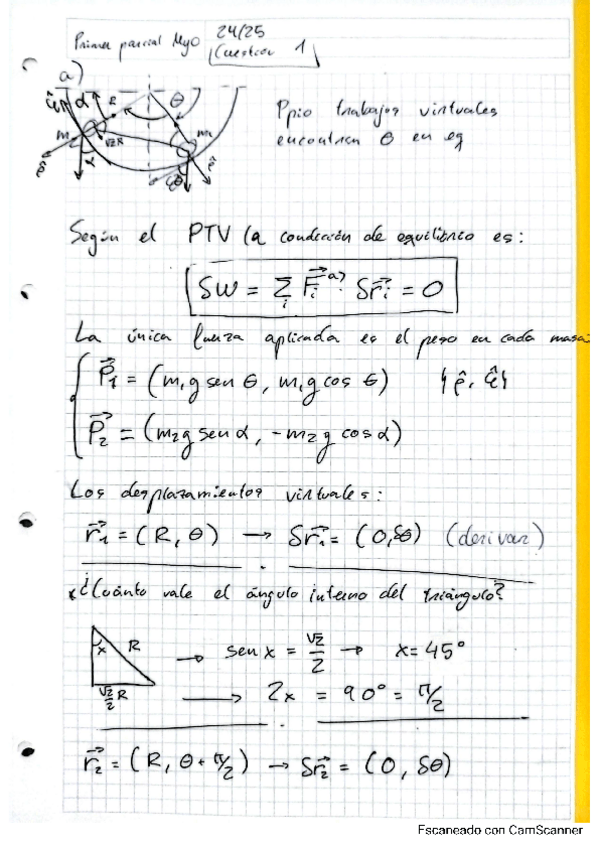 Primer parcial MyO 24/25
Cuestión 1
a)
α R θ
m √2R m₁
α
ρ̂ θ ρ̂
Ppio trabajos virtuales
encontrar θ en eq
Según el PTV la condición de equilibrio es:
δW = Σᵢ F⃗ᵢᵃ⁾ · δr⃗ᵢ = 0
La única fuerza aplicada es el peso en cada masa:
P⃗₁ = (m₁g sen θ, m₁g cos θ)
P⃗₂ = (m₂g sen α, -m₂g cos α)
Los desplazamientos virtuales:
r⃗₁ = (R, θ) → δr⃗₁ = (0, δθ) (derivar)
¿Cuánto vale el ángulo interno del triángulo?
x R
√2/2 R
→ sen x = √2/2 → x = 45°
→ 2x = 90° = π/2
r⃗₂ = (R, θ + π/2) → δr⃗₂ = (0, δθ)
Escaneado con CamScanner